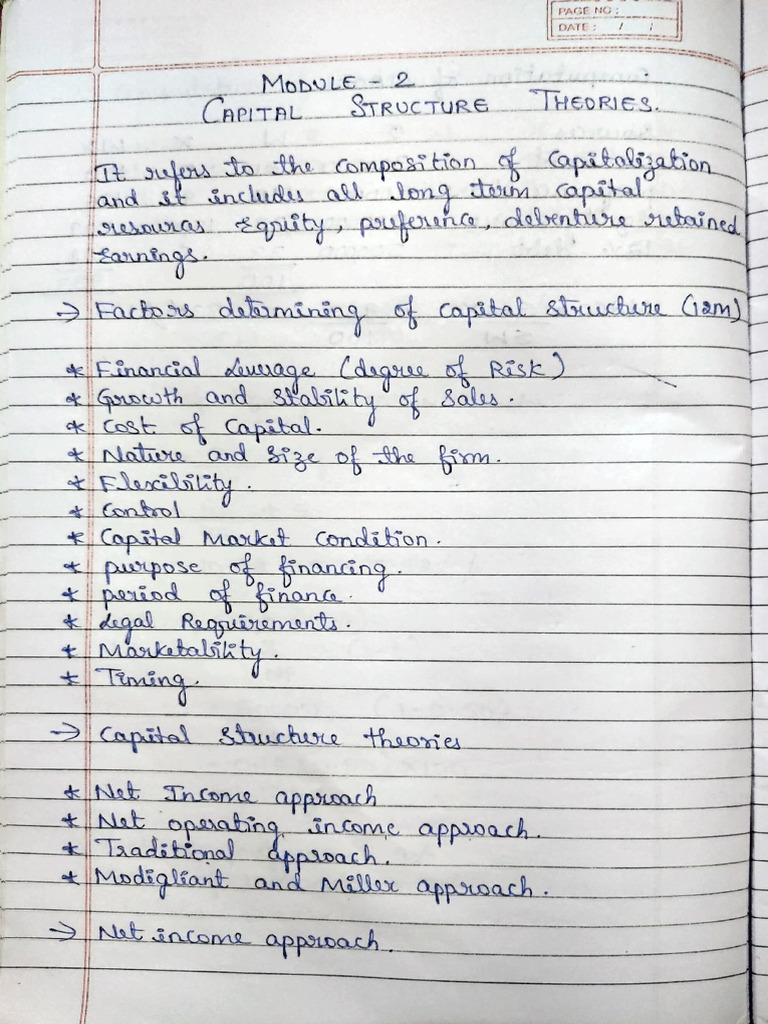 PAGE NO :
DATE : / /
MODULE - 2
CAPITAL STRUCTURE THEORIES.
It refers to the composition of capitalization
and it includes all long term capital
resources Equity, preference, debenture retained
Earnings.
→ Factors determining of capital structure (12M)
* Financial Leverage (degree of Risk)
* Growth and Stability of Sales.
* Cost of Capital.
* Nature and Size of the firm.
* Flexibility.
* Control
* Capital Market Condition.
* purpose of financing.
* period of finance.
* Legal Requirements.
* Marketability.
* Timing.
→ Capital Structure theories
* Net Income approach
* Net operating income approach.
* Traditional approach.
* Modigliant and Miller approach.
→ Net income approach.